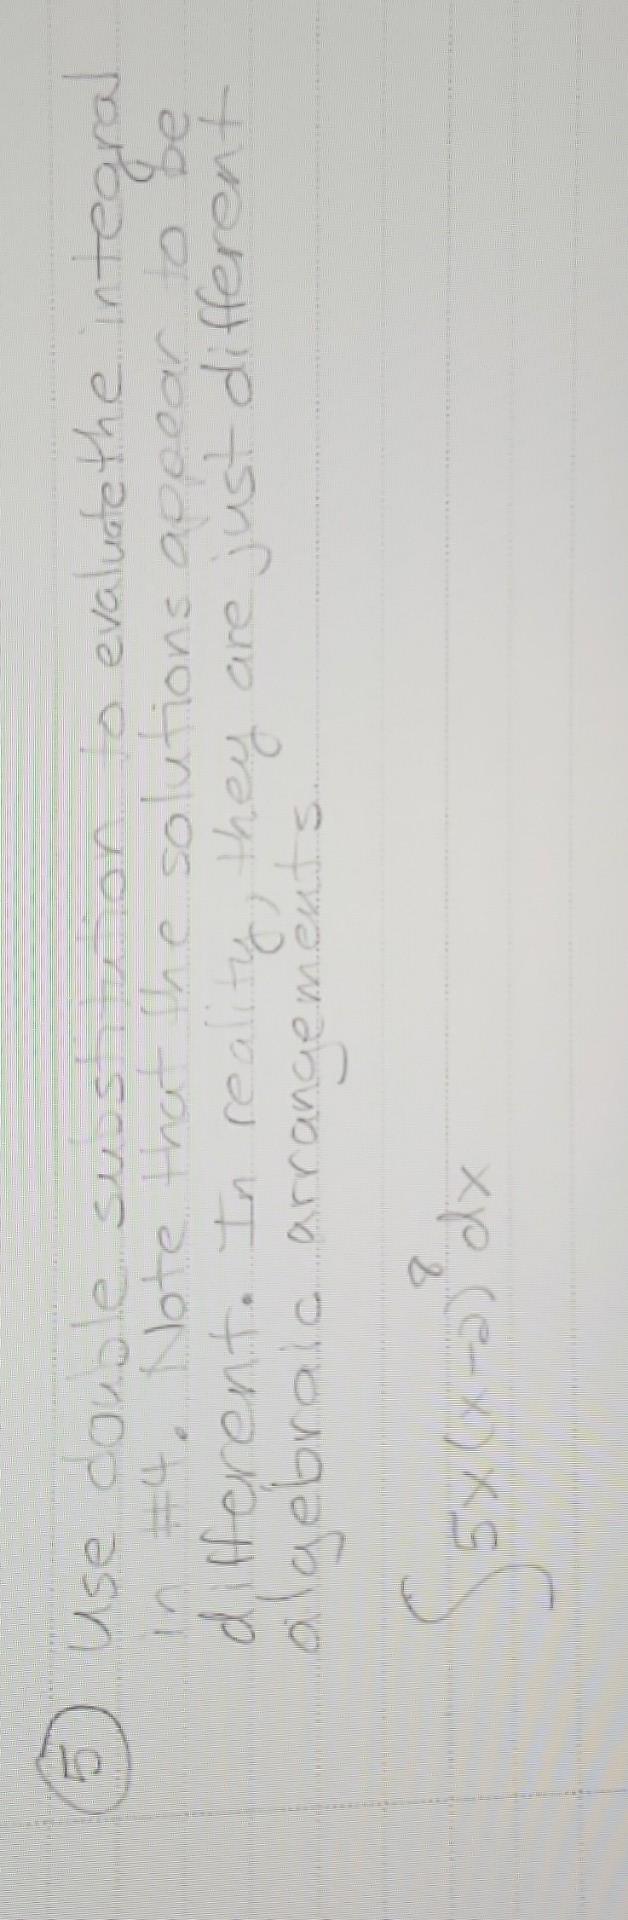 5 Use double substitution to evaluate the integral
in #4. Note that the solutions appear to be
different. In reality, they are just different
algebraic arrangements.
∫ 5x(x-2)⁸ dx